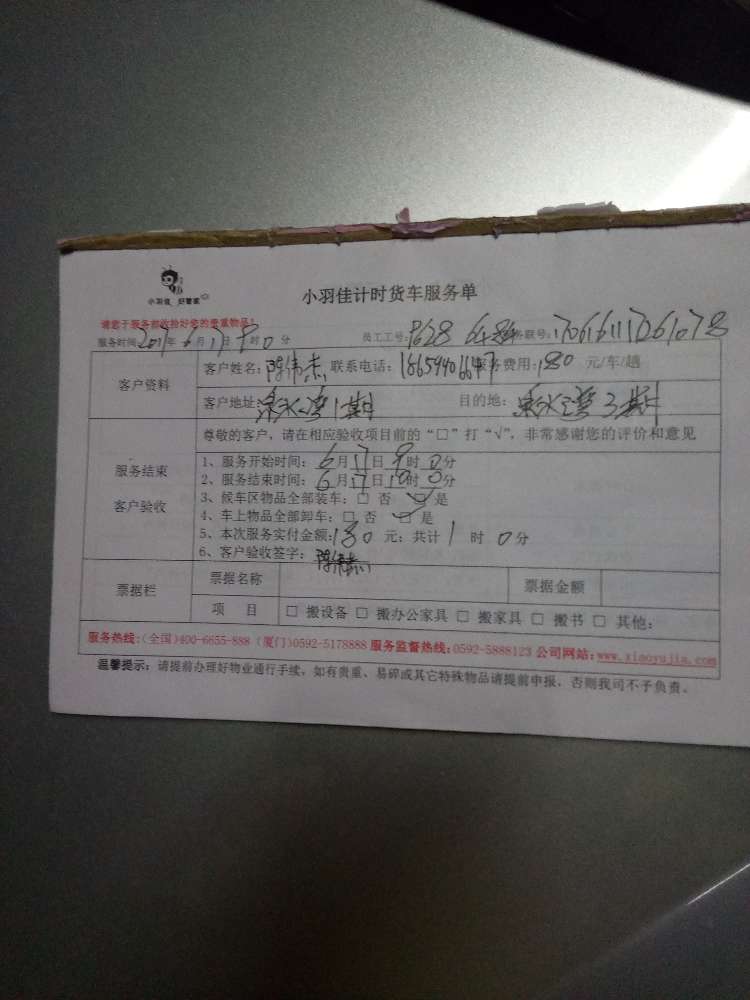 小羽佳 好管家
小羽佳计时货车服务单
请您于服务前收拾好您的贵重物品!
服务时间:2017年6月17日9时0分 员工工号:8628 务联号:
客户资料
客户姓名:陈伟杰 联系电话: 服务费用:180 元/车/趟
客户地址:泉水湾1期 目的地:泉水湾3期
尊敬的客户，请在相应验收项目前的“□”打“√”，非常感谢您的评价和意见
服务结束
客户验收
1、服务开始时间:6月17日9时0分
2、服务结束时间:6月17日10时0分
3、候车区物品全部装车:□ 否 ☑是
4、车上物品全部卸车:□ 否 ☑是
5、本次服务实付金额:180 元;共计1 时 0分
6、客户验收签字:陈伟杰
票据栏
票据名称 票据金额
项 目 □ 搬设备 □ 搬办公家具 □ 搬家具 □ 搬书 □ 其他:
服务热线:(全国)400-6655-888 (厦门)0592-5178888 服务监督热线:0592-5888123 公司网站:www.xiaoyujia.com
温馨提示:请提前办理好物业通行手续，如有贵重、易碎或其它特殊物品请提前申报，否则我司不予负责。